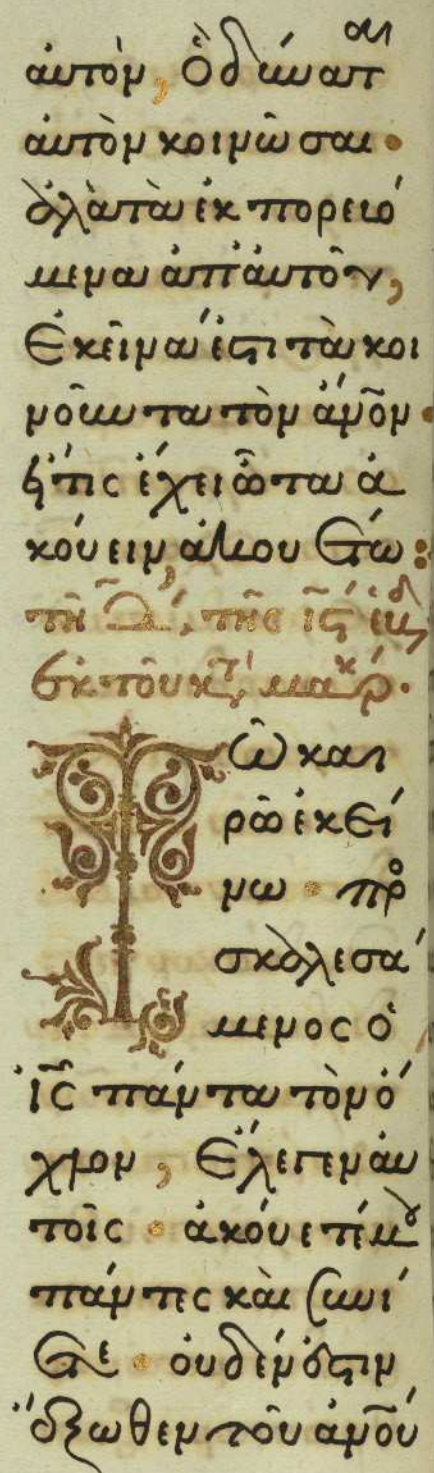 αὐτὸν, Ὃ δύναται
αὐτὸν κοινῶσαι·
ἀλλὰ τὰ ἐκπορευό
μενα ἀπ' αὐτοῦ,
Ἐκεῖνά ἐστι τὰ κοι
νοῦντα τὸν ἄνο̃ν·
εἴ τις ἔχει ὦτα ἀ
κούειν, ἀκουέτω:
τῆς ις
ἐκ τοῦ κτ μαρκ·
Τῶ και
ρῶ ἐκεί
νω · προ
σκαλεσά
μενος ὁ
ἰς̃ πάντα τὸν ὄ
χλον, Ἔλεγεν αὐ
τοῖς · ἀκούετέ μου
πάντες καὶ συνί
ετε · οὐδέν ἐστιν
ἔξωθεν τοῦ ἀνο̃υ